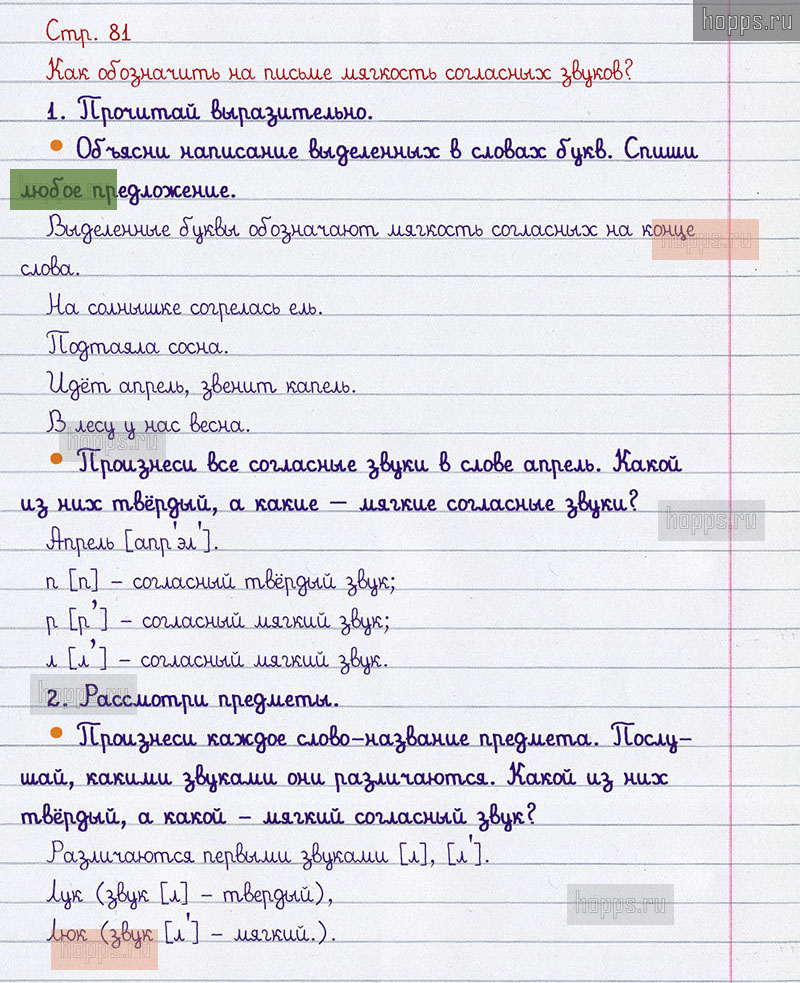 hopps.ru
Стр. 81
Как обозначить на письме мягкость согласных звуков?
1. Прочитай выразительно.
• Объясни написание выделенных в словах букв. Спиши
любое предложение.
Выделенные буквы обозначают мягкость согласных на конце
hopps.ru
слова.
На солнышке согрелась ель.
Подтаяла сосна.
Идёт апрель, звенит капель.
В лесу у нас весна.
hopps.ru
• Произнеси все согласные звуки в слове апрель. Какой
из них твёрдый, а какие – мягкие согласные звуки?
hopps.ru
Апрель [апр'эл'].
п [п] – согласный твёрдый звук;
р [р'] – согласный мягкий звук;
л [л'] – согласный мягкий звук.
hopps.ru
2. Рассмотри предметы.
• Произнеси каждое слово-название предмета. Послу-
шай, какими звуками они различаются. Какой из них
твёрдый, а какой – мягкий согласный звук?
Различаются первыми звуками [л], [л'].
Лук (звук [л] – твердый),
hopps.ru
Люк (звук [л'] – мягкий.).
hopps.ru